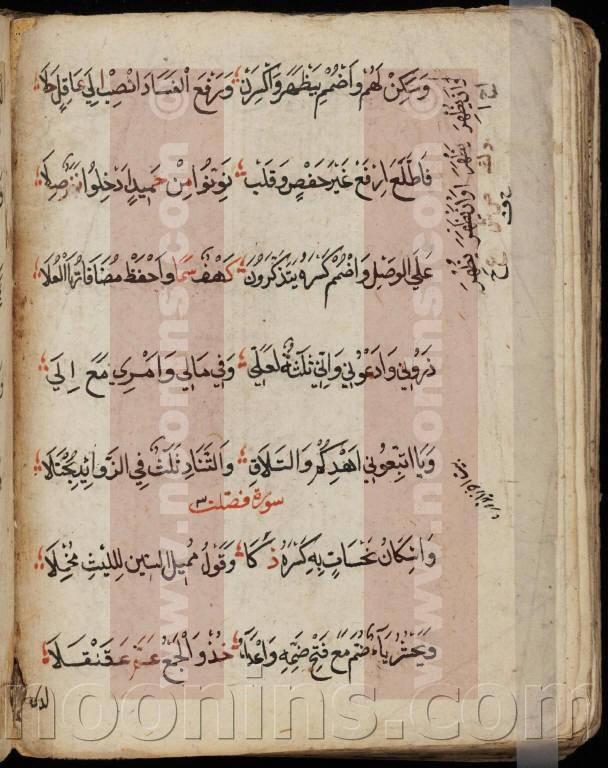 وَسَكِّنْ لَهُمْ وَاضْمُمْ بِيَظْهَرَ وَاكْسِرَنْ وَرَفْعَ الْفَسَادَ انْصِبْ إِلَى عَاقِلٍ حَلَا
فَأَطَّلِعَ ارْفَعْ غَيْرَ حَفْصٍ وَقَلْبِ نَوِّنُوا مِنْ حَمِيدٍ ادْخِلُوا نَفَرٌ صِلَا
عَلَى الوَصْلِ وَاضْمُمْ كَسْرَهُ يَتَذَكَّرُونَ كَهْفٌ سَمَا وَاحْفَظْ مُضَافَاتِهَا الْعُلَا
ذَرُونِي وَادْعُونِي وَإِنِّي ثَلَاثَةٌ لَعَلِّي وَفِي مَالِي وَأَمْرِي مَعْ إِلَيّ
وَيَا اتَّبِعُونِي أَهْدِكُمْ وَالتَّلَاقِ وَالتَّنَادِ ثَلَثٌ فِي الزَّوَائِدِ تُجْتَلَا
سورة فصلت
وَإِسْكَانُ نَحْسَاتٍ بِهِ كَسْرُهُ ذَكَا وَقَوْلُ مُمِيلِ السِّينِ لِلَّيْثِ أُخْمِلَا
وَيُحْشَرُ يَاءٌ ضُمَّ مَعْ فَتْحِ ضَمِّهِ وَأَعْدَاءُ خُذْ وَالْجَمْعُ عَمَّ عَقَنْقَلَا
www.noonins.com ©
www.noonins.com ©
noonins.com